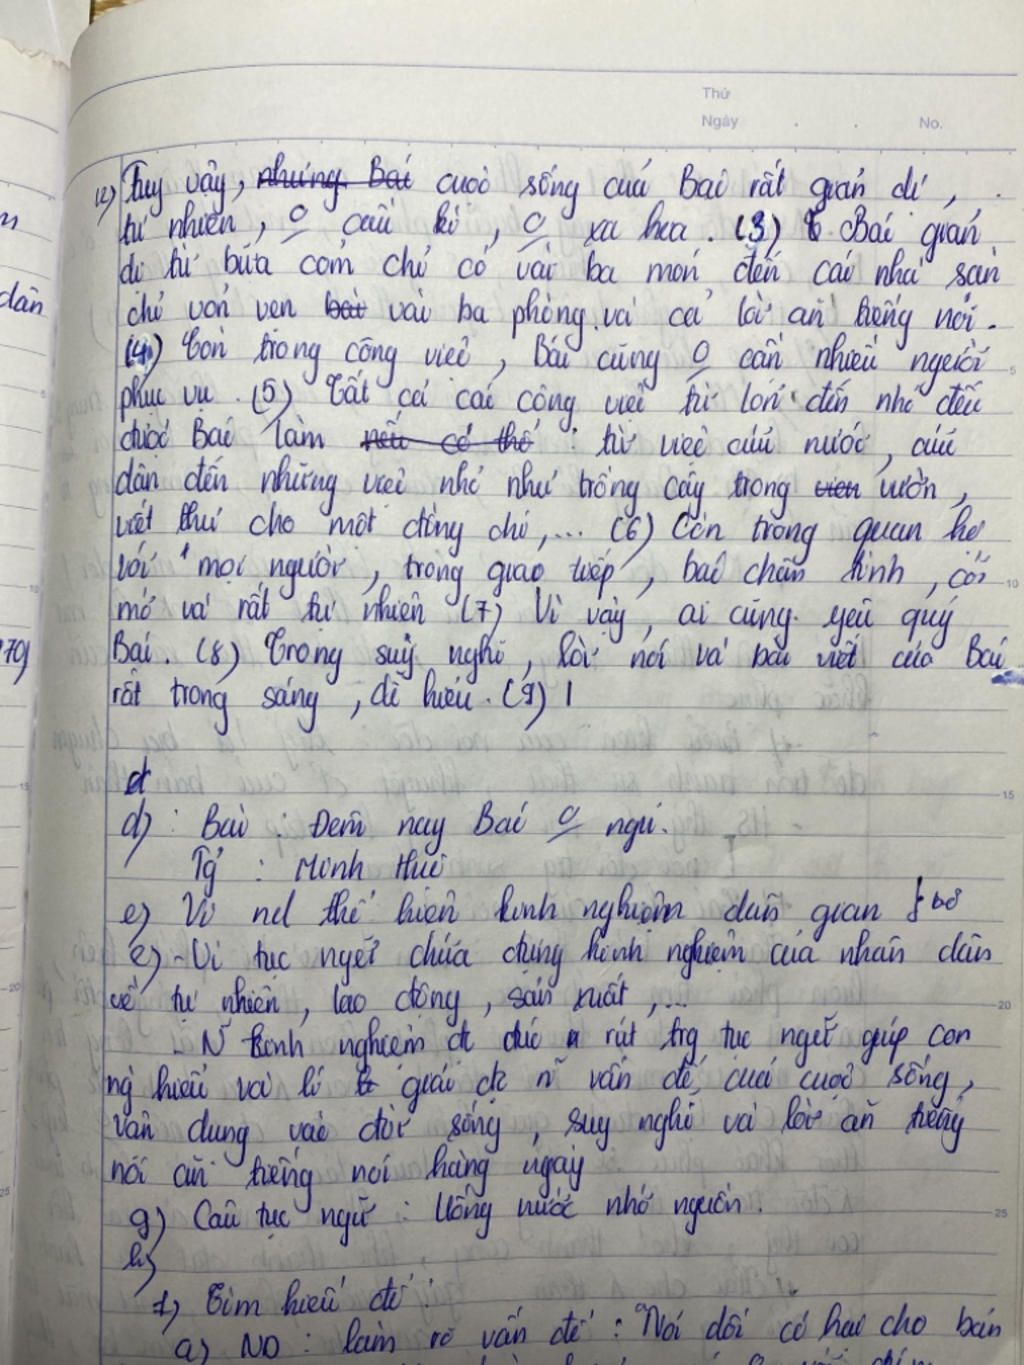 Thứ
Ngày . . No.
(2) Tuy vậy, những Bác cuộc sống của Bác rất giản dị,
tự nhiên, o cầu kì, o xa hoa. (3) Bác giản
dị từ bữa cơm chỉ có vài ba món đến cái nhà sàn
chỉ vỏn vẹn bài vài ba phòng và cả lời ăn tiếng nói.
(4) Còn trong công việc, Bác cũng o cần nhiều người
phục vụ. (5) Tất cả các công việc từ lớn đến nhỏ đều
được Bác làm nếu có thể : từ việc cứu nước, cứu
dân đến những việc nhỏ như trồng cây trong vườn,
viết thư cho một đồng chí,... (6) Còn trong quan hệ
với mọi người, trong giao tiếp, bác chân tình, cởi
mở và rất tự nhiên (7) Vì vậy, ai cũng yêu quý
Bác. (8) Trong suy nghĩ, lời nói và bài viết của Bác
rất trong sáng, dễ hiểu. (9) 1
d
d) : Bài : Đêm nay Bác o ngủ.
Tg : Minh Huệ
e) Vì nd thể hiện kinh nghiệm dân gian
e) - Vì tục ngữ chứa đựng kinh nghiệm của nhân dân
về tự nhiên, lao động, sản xuất,...
- N~ kinh nghiệm đc đúc rút trg tục ngữ giúp con
ng hiểu và lí giải đc n~ vấn đề của cuộc sống,
vận dụng vào đời sống, suy nghĩ và lời ăn tiếng
nói ăn tiếng nói hàng ngày
g) Câu tục ngữ : Uống nước nhớ nguồn.
h)
1, Tìm hiểu đề :
a) ND : làm rõ vấn đề : "Nói dối có hại cho bản